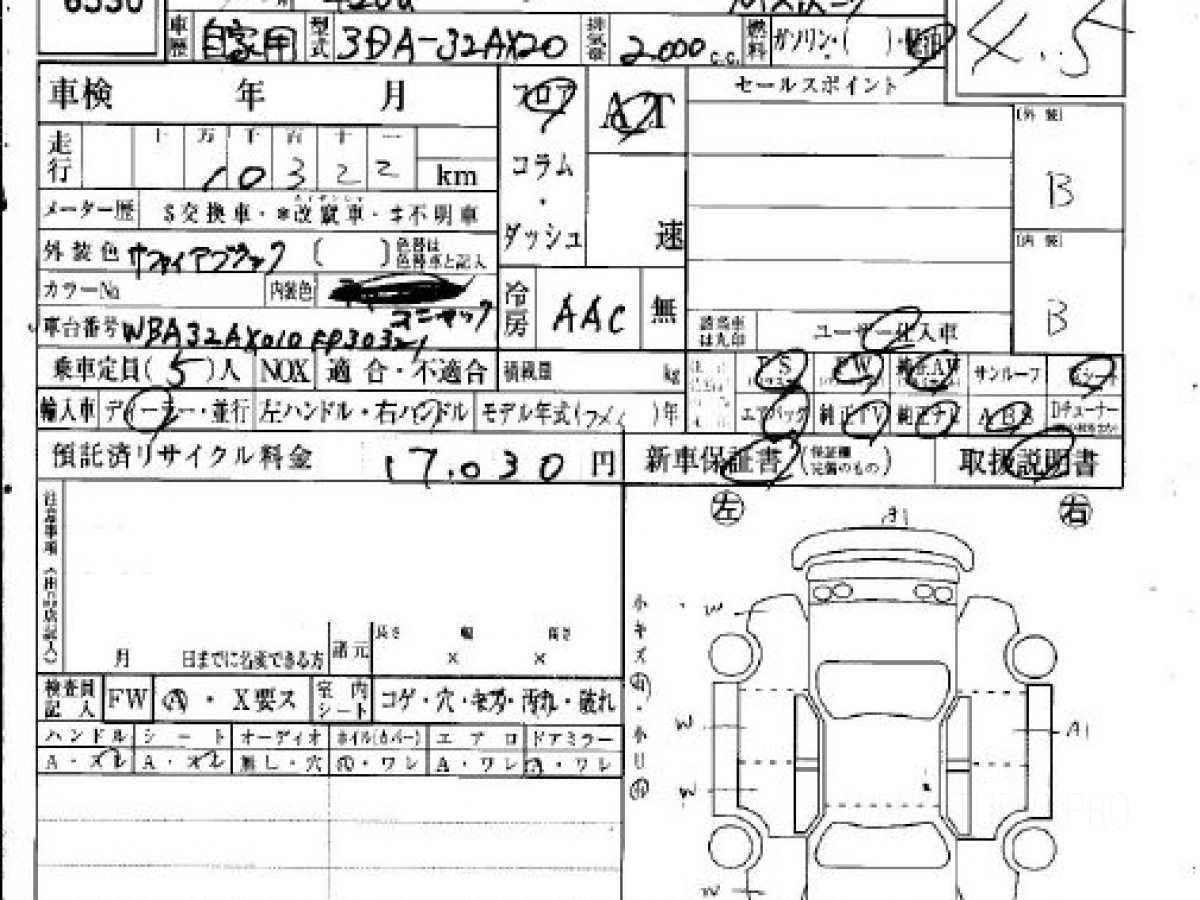 6530
車歴 自家用 型式 3DA-32AX20 排気量 2.000 c.c. 燃料 ガソリン・( )・軽油
4.5
車検 年 月
フロア AT セールスポイント
走行 十 万 千 百 十 一
10322 km
コラム
・
ダッシュ 速
[外装] B
メーター歴 $交換車・*改竄車・‡不明車
外装色 サファイアブラック ( ) 色替は色替車と記入
[内装] B
カラーNo 内装色
冷房 AAC 無
車台番号 WBA32AX010FP30321
該当車は丸印 ユーザー仕入車
乗車定員(5)人 NOX 適合・不適合 積載量 kg
PS PW 純正AW サンルーフ 革シート
輸入車 ディーラー・並行 左ハンドル・右ハンドル モデル年式( )年
エアバッグ 純正TV 純正ナビ ABS Dチューナー
預託済リサイクル料金 17.030 円 新車保証書(保証欄完備のもの) 取扱説明書
左 右
A1
注意事項(出品店記入)
小キズ 有・小凹 有
W
月 日までに名変できる方 諸元 長さ 幅 高さ
× ×
検査員記入 FW A・X要ス 室内シート コゲ・穴・キズ・汚れ・破れ
W A1
ハンドル シート オーディオ ホイル(カバー) エアロ ドアミラー
A・スレ A・スレ 無し・穴 A・ワレ A・ワレ A・ワレ
W
W
PRO